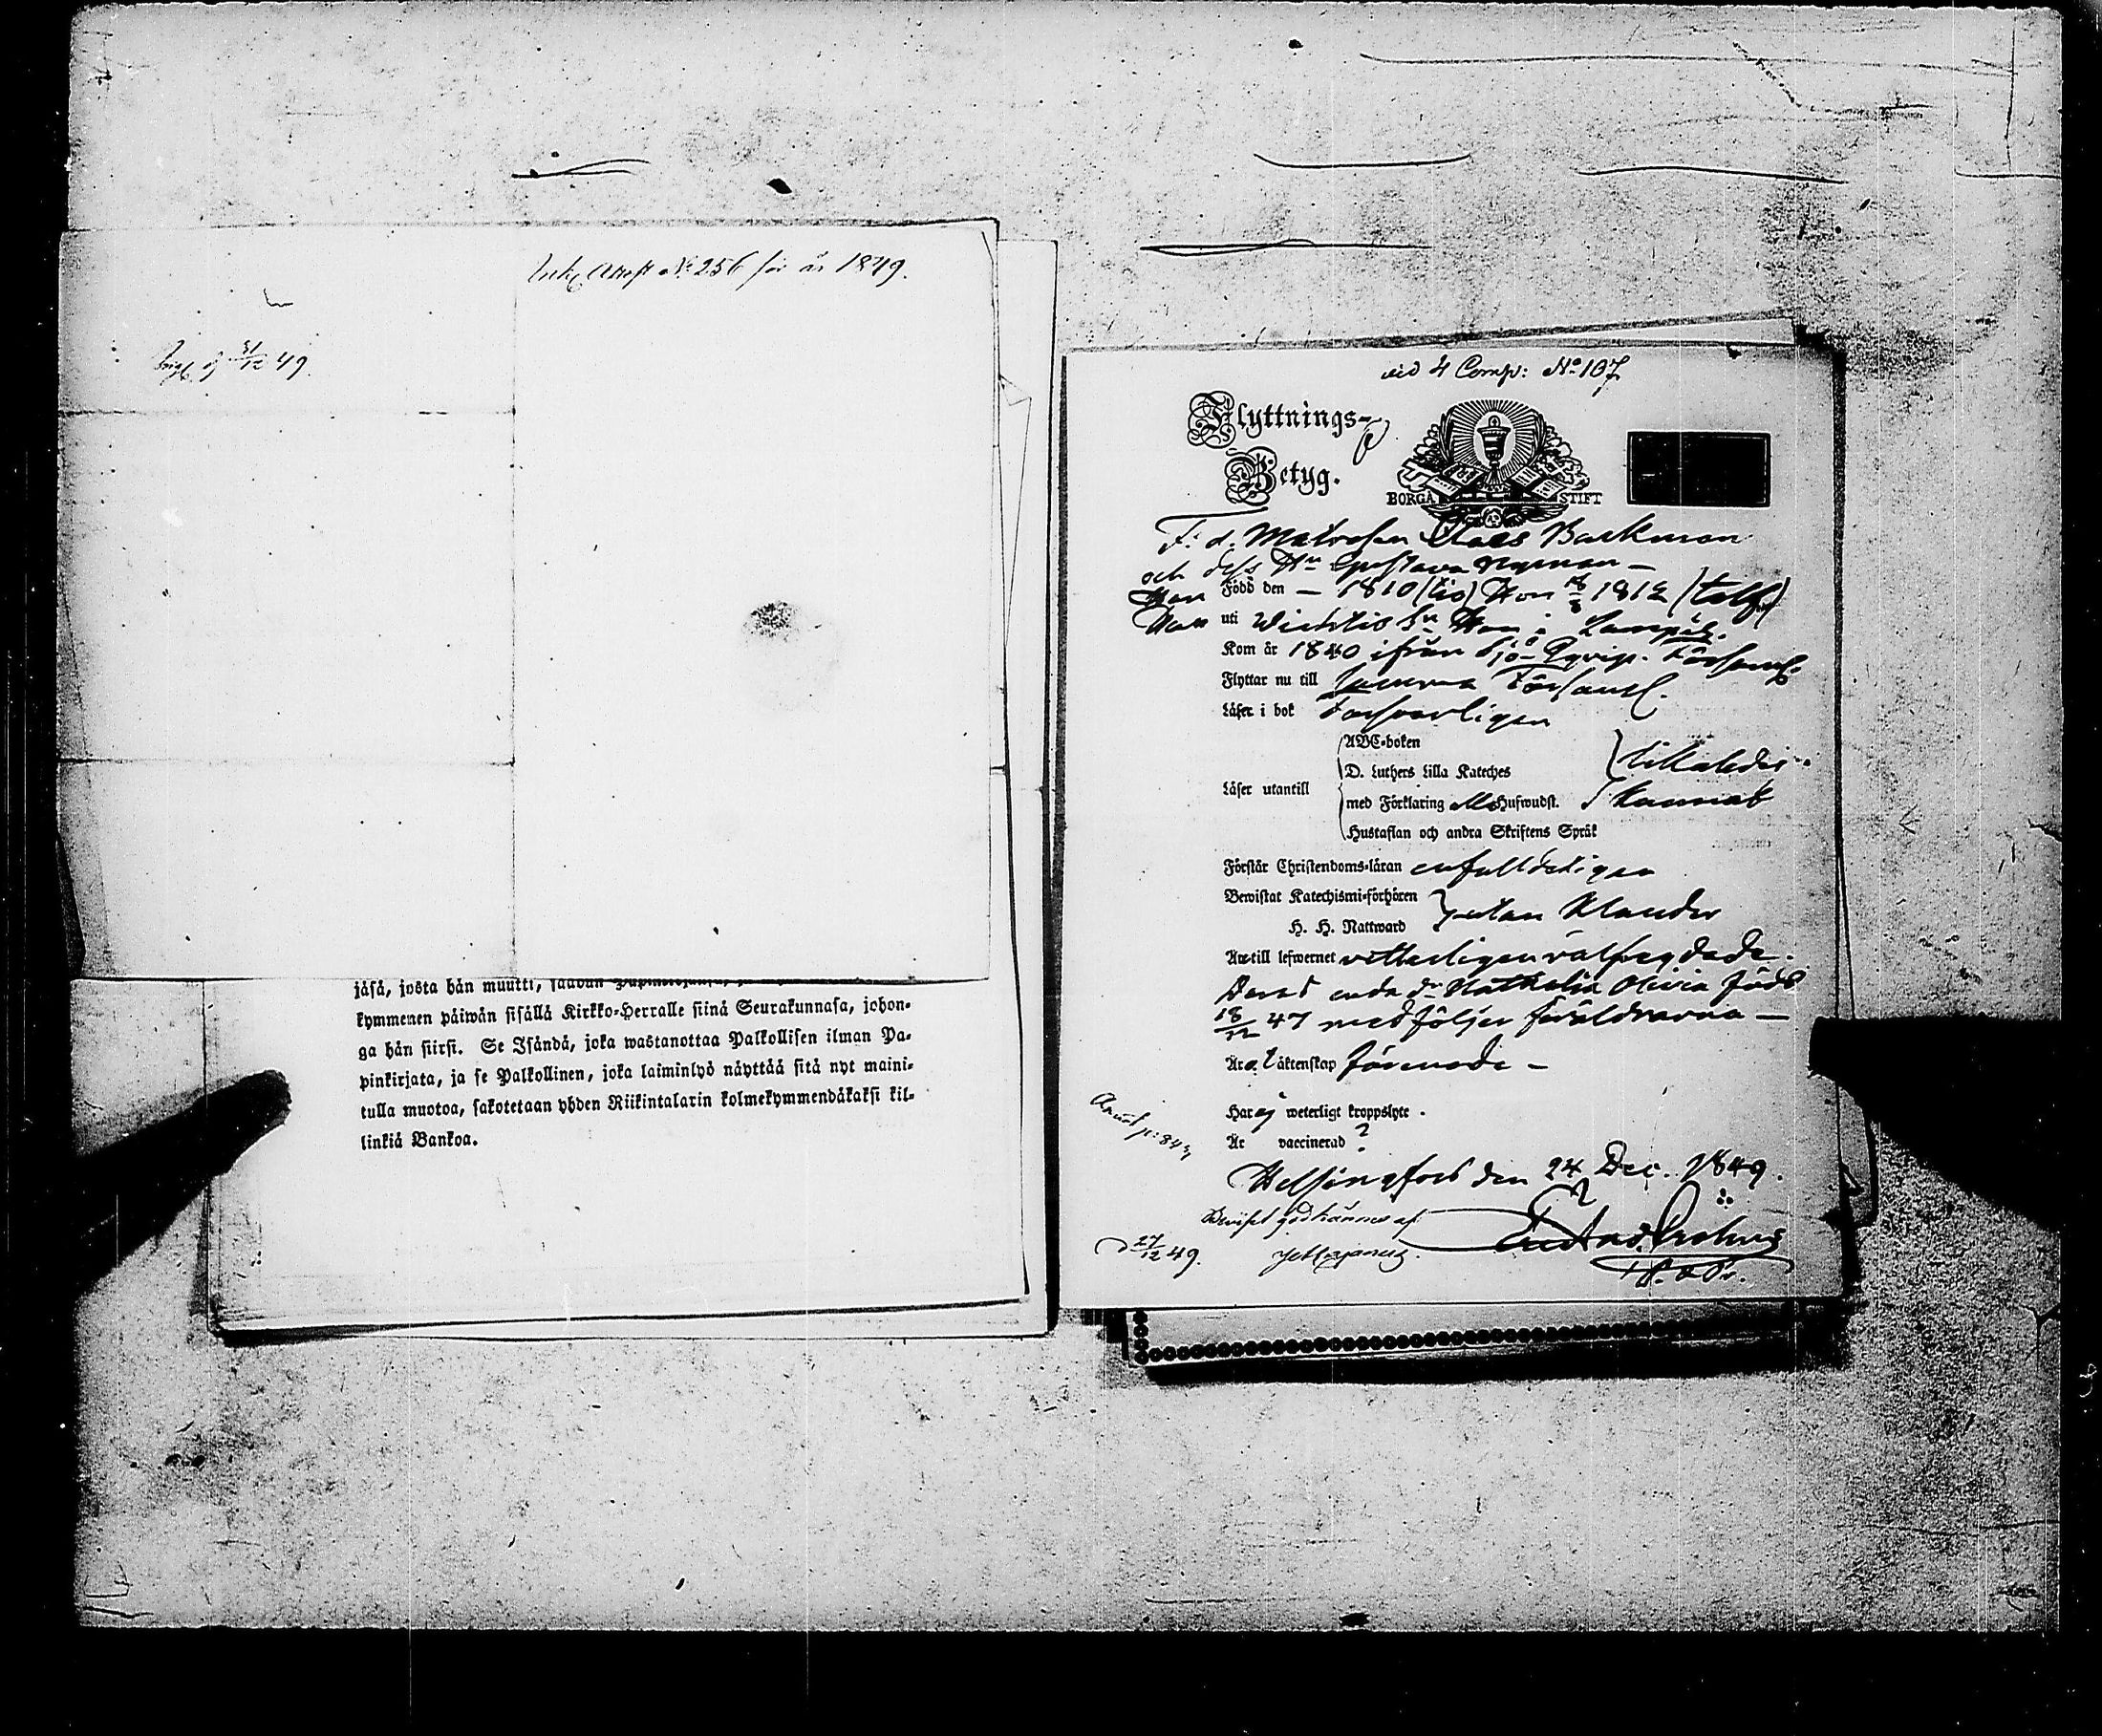 Ink. Attest No 256 för år 1849.
31/12 49.
jåså, josta hån muutti,
kymmenen påiwån sisållå Kirkko-Herralle siinå Seurakunnasa, johon-
ga hån siirsi. Se Isåndå, joka wastanottaa Palkollisen ilman Pa-
pinkirjata, ja se Palkollinen, joka laiminlyö nåyttåå sitå nyt maini-
tulla muotoa, sakotetaan yhden Riikintalarin kolmekymmendåkaksi kil-
linkiå Bankoa.
vid 4 Comp: No 107
Flyttnings-
Betyg.
BORGÅ STIFT
F. d. Matrosen Claes Backman
och dess Hu Gustava Nyman –
Han Född den – 1810 (tio) Hon 1812 (tolf)
Han uti Wichtis Sn Hon i
Kom år 1840 ifrån Sjö-Eqvip. Församl.
Flyttar nu till Församl.
Låser i bok Försvarligen
ABC-boken
D. Luthers Lilla Kateches
Låser utantill
med Förklaring Hufwudst.
Hustaflan och andra Skriftens Språk
Förstår Christendoms-låran enfalldeligen
Bewistat Katechismi-förhören
H. H. Nattward } utan klander
Är till lefwernet vitterligen välfregdade.
Deras enda dr Nathalia Olivia född
18/12 47 medföljer föräldrarna –
Är åktenskap förenade –
Har ej weterligt kroppslyte.
Är vaccinerad ?
Helsingfors den 24 Dec. 1849.
Beviset godkännes af
27/12 49.